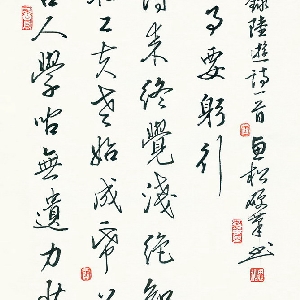 錄陸遊詩一首
事要躬行
得来終覺淺絕知
工夫老始成帋
人學問無遺力